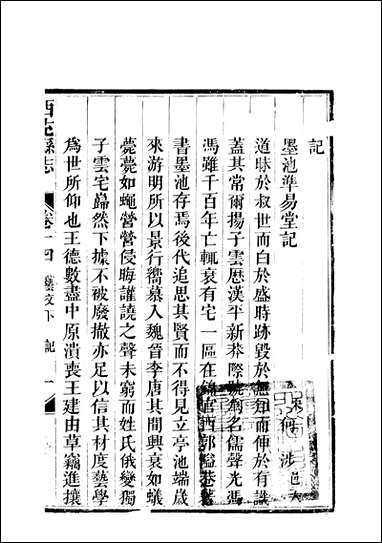 記
墨池準易堂記
何涉
道昧於叔世而白於盛時跡毀於愚知而伸於有識
蓋其常爾揚子雲歷漢平新莽際號名儒聲光馮
馮雖千百年亡輒衰有宅一區在錦官西郭隘巷著
書墨池存焉後代追思其賢而不得見立亭池端歲
來游明所以景行嚮慕入魏晉李唐其間興衰如蟻
薨薨如蠅營營侵晦讙譊之聲未窮而姓氏俄變獨
子雲宅巋然下據不被廢撤亦足以信其材度藝學
為世所仰也王德數盡中原潰喪王建由草竊進攘
卷十四
藝文下
記
一
縣志